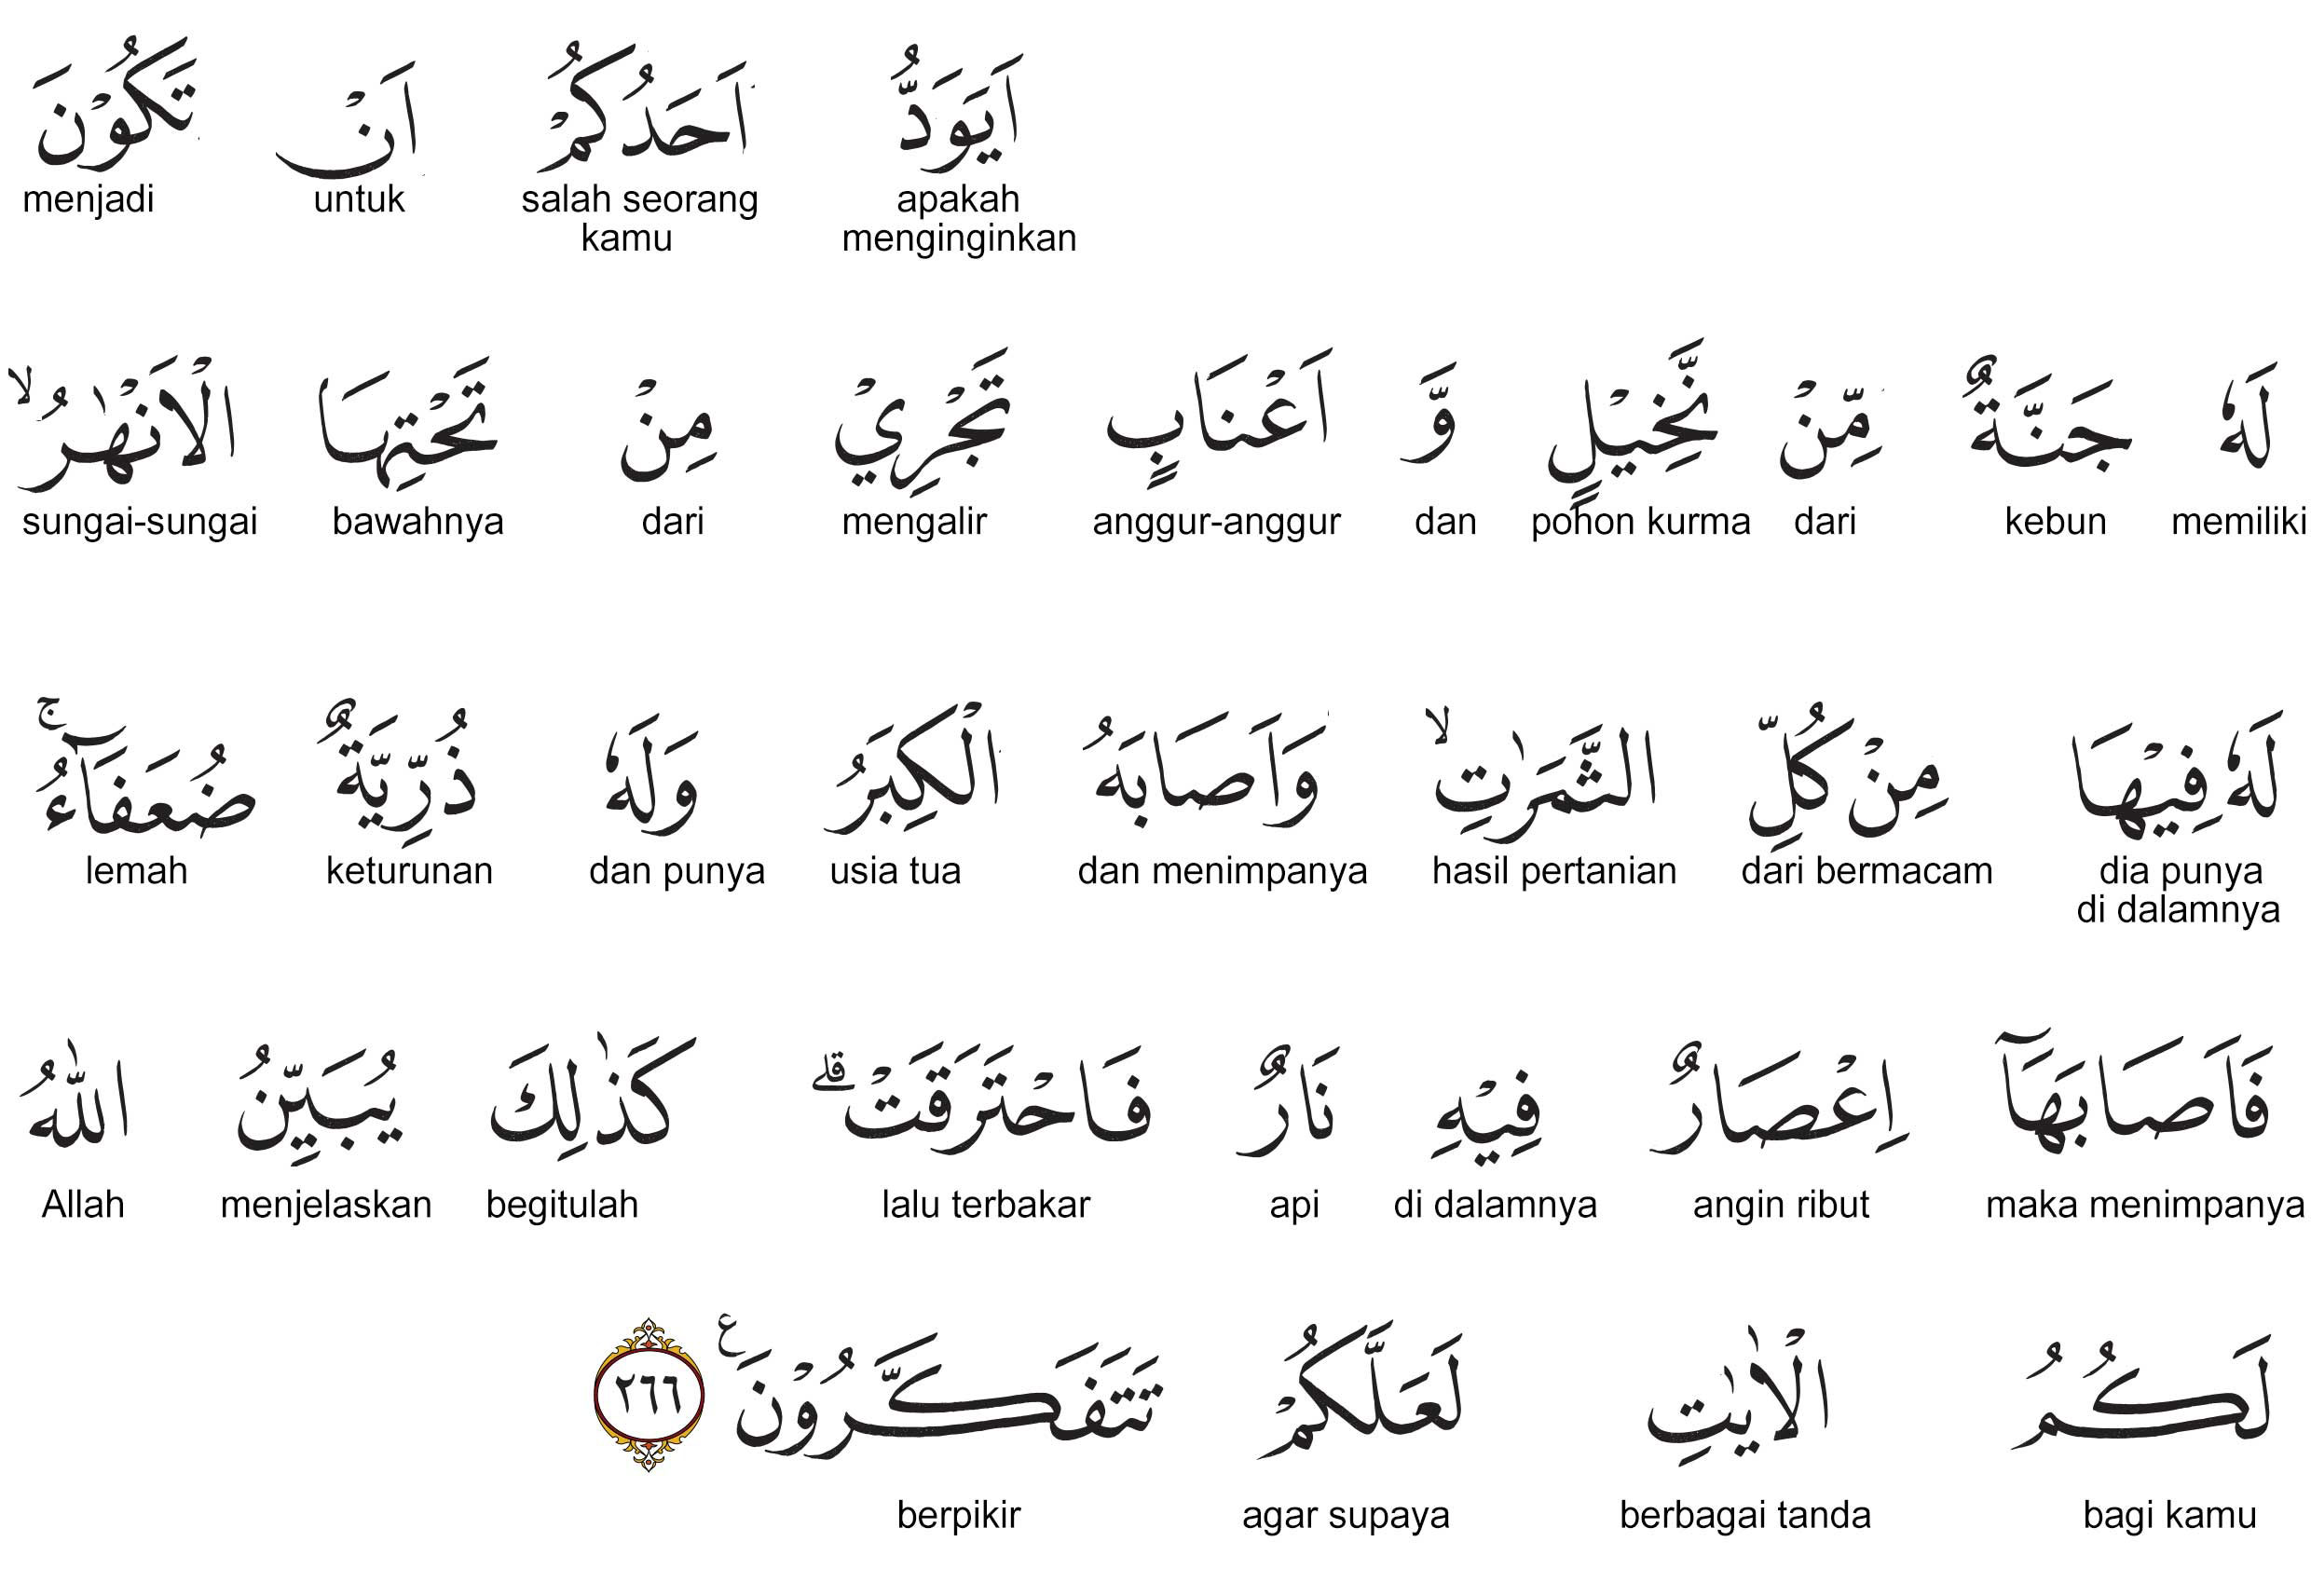 اَيَوَدُّ اَحَدُكُمْ اَنْ تَكُوْنَ
apakah menginginkan salah seorang kamu untuk menjadi
لَهٗ جَنَّةٌ مِّنْ نَّخِيْلٍ وَّ اَعْنَابٍ تَجْرِيْ مِنْ تَحْتِهَا الْاَنْهٰرُۙ
memiliki kebun dari pohon kurma dan anggur-anggur mengalir dari bawahnya sungai-sungai
لَهٗ فِيْهَا مِنْ كُلِّ الثَّمَرٰتِۙ وَاَصَابَهُ الْكِبَرُ وَلَهٗ ذُرِّيَّةٌ ضُعَفَاۤءُۚ
dia punya di dalamnya dari bermacam hasil pertanian dan menimpanya usia tua dan punya keturunan lemah
فَاَصَابَهَآ اِعْصَارٌ فِيْهِ نَارٌ فَاحْتَرَقَتْۗ كَذٰلِكَ يُبَيِّنُ اللّٰهُ
maka menimpanya angin ribut di dalamnya api lalu terbakar begitulah menjelaskan Allah
لَكُمُ الْاٰيٰتِ لَعَلَّكُمْ تَتَفَكَّرُوْنَ ࣖ ٢٦٦
bagi kamu berbagai tanda agar supaya berpikir